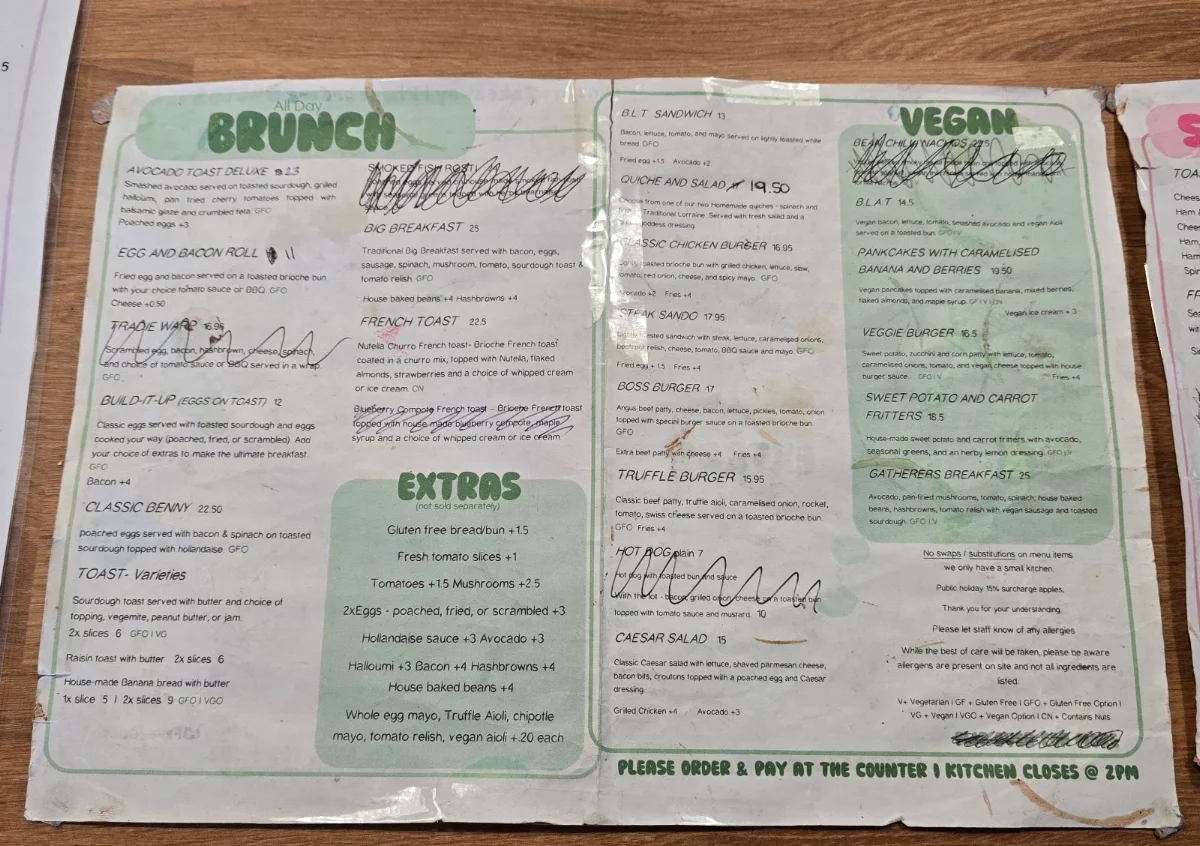 5
All Day
BRUNCH
AVOCADO TOAST DELUXE 23
Smashed avocado served on toasted sourdough, grilled
halloumi, pan fried cherry tomatoes topped with
balsamic glaze and crumbled feta. GFO
Poached eggs +3
EGG AND BACON ROLL 11
Fried egg and bacon served on a toasted brioche bun
with your choice tomato sauce or BBQ. GFO
Cheese +0.50
TRADIE WARP 16.95
Scrambled egg, bacon, hashbrown, cheese, spinach,
and choice of tomato sauce or BBQ served in a wrap.
GFO
BUILD-IT-UP (EGGS ON TOAST) 12
Classic eggs served with toasted sourdough and eggs
cooked your way (poached, fried, or scrambled). Add
your choice of extras to make the ultimate breakfast.
GFO
Bacon +4
CLASSIC BENNY 22.50
poached eggs served with bacon & spinach on toasted
sourdough topped with hollandaise. GFO
TOAST- Varieties
Sourdough toast served with butter and choice of
topping, vegemite, peanut butter, or jam.
2x slices 6 GFO I VG
Raisin toast with butter 2x slices 6
House-made Banana bread with butter
1x slice 5 I 2x slices 9 GFO I VGO
SMOKED FISH ROSTI
BIG BREAKFAST 25
Traditional Big Breakfast served with bacon, eggs,
sausage, spinach, mushroom, tomato, sourdough toast &
tomato relish. GFO
House baked beans +4 Hashbrowns +4
FRENCH TOAST 22.5
Nutella Churro French toast- Brioche French toast
coated in a churro mix, topped with Nutella, flaked
almonds, strawberries and a choice of whipped cream
or ice cream. CN
Blueberry Compote French toast - Brioche French toast
topped with house made blueberry compote, maple
syrup and a choice of whipped cream or ice cream
EXTRAS
(not sold separately)
Gluten free bread/bun +1.5
Fresh tomato slices +1
Tomatoes +1.5 Mushrooms +2.5
2xEggs - poached, fried, or scrambled +3
Hollandaise sauce +3 Avocado +3
Halloumi +3 Bacon +4 Hashbrowns +4
House baked beans +4
Whole egg mayo, Truffle Aioli, chipotle
mayo, tomato relish, vegan aioli +.20 each
B.L.T SANDWICH 13
Bacon, lettuce, tomato, and mayo served on lightly toasted white
bread. GFO
Fried egg +1.5 Avocado +2
QUICHE AND SALAD 19.50
Choose from one of our two Homemade quiches - spinach and
Traditional Lorraine. Served with fresh salad and a
goddess dressing.
CLASSIC CHICKEN BURGER 16.95
Lightly toasted brioche bun with grilled chicken, lettuce, slaw,
tomato, red onion, cheese, and spicy mayo. GFO
Avocado +2 Fries +4
STEAK SANDO 17.95
Lightly toasted sandwich with steak, lettuce, caramelised onions,
beetroot relish, cheese, tomato, BBQ sauce and mayo. GFO
Fried egg + 1.5 Fries +4
BOSS BURGER 17
Angus beef patty, cheese, bacon, lettuce, pickles, tomato, onion
topped with special burger sauce on a toasted brioche bun.
GFO
Extra beef patty with cheese +4 Fries +4
TRUFFLE BURGER 15.95
Classic beef patty, truffle aioli, caramelised onion, rocket,
tomato, swiss cheese served on a toasted brioche bun.
GFO Fries +4
HOT DOG plain 7
Hot dog with toasted bun and sauce
With the lot - bacon, grilled onion, cheese on a toasted bun
topped with tomato sauce and mustard. 10
CAESAR SALAD 15
Classic Caesar salad with lettuce, shaved parmesan cheese,
bacon bits, croutons topped with a poached egg and Caesar
dressing.
Grilled Chicken +4 Avocado +3
VEGAN
BEAN CHILLI NACHOS 22.5
B.L.A.T 14.5
Vegan bacon, lettuce, tomato, smashed avocado and vegan Aioli
served on a toasted bun. GFO I V
PANKCAKES WITH CARAMELISED
BANANA AND BERRIES 19.50
Vegan pancakes topped with caramelised banana, mixed berries,
flaked almonds, and maple syrup. GF I V I CN
Vegan ice cream + 3
VEGGIE BURGER 16.5
Sweet potato, zucchini and corn party with lettuce, tomato,
caramelised onions, tomato, and vegan cheese topped with house
burger sauce. GFO I V Fries +4
SWEET POTATO AND CARROT
FRITTERS 18.5
House-made sweet potato and carrot fritters with avocado,
seasonal greens, and an herby lemon dressing. GFO I V
GATHERERS BREAKFAST 25
Avocado, pan-fried mushrooms, tomato, spinach, house baked
beans, hashbrowns, tomato relish with vegan sausage and toasted
sourdough. GFO I V
No swaps / substitutions on menu items
we only have a small kitchen.
Public holiday 15% surcharge applies.
Thank you for your understanding.
Please let staff know of any allergies
While the best of care will be taken, please be aware
allergens are present on site and not all ingredients are
listed.
V+ Vegetarian I GF + Gluten Free I GFO + Gluten Free Option I
VG + Vegan I VGO + Vegan Option I CN + Contains Nuts
PLEASE ORDER & PAY AT THE COUNTER I KITCHEN CLOSES @ 2PM